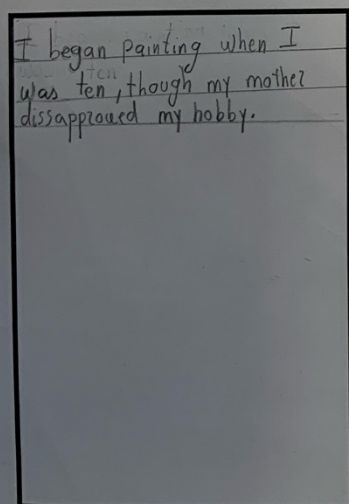 I began painting when I
was ten, though my mother
dissapproved my hobby.